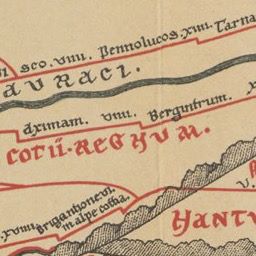 sco. viiii. Pennolucos. xiiii. Tarna
AVRACI.
Aximam. viiii. Bergintrum. x
COTII·REGNUM.
V.
xviiii. Brigantione. vi
in alpe cottia.
NANTV